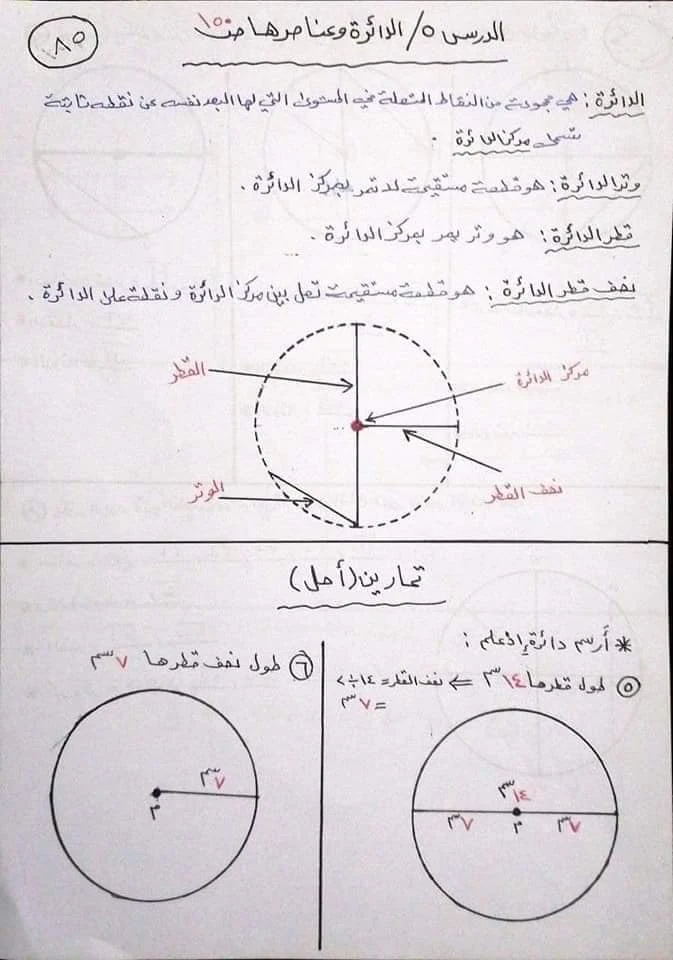 ٨٥
الدرس ٥/ الدائرة وعناصرها ص ١٥٠
الدائرة : هي مجموعة من النقاط المتصلة في المستوى التي لها البعد نفسه عن نقطة ثابتة
تسمى مركز الدائرة .
وتر الدائرة : هو قطعة مستقيمة لا تمر بمركز الدائرة .
قطر الدائرة : هو وتر يمر بمركز الدائرة .
نصف قطر الدائرة : هو قطعة مستقيمة تصل بين مركز الدائرة ونقطة على الدائرة .
القطر
مركز الدائرة
نصف القطر
الوتر
تمارين (أحل)
* أرسم دائرة إذا علم :
٥ طول قطرها ١٤ سم ⇐ نصف القطر = ١٤ ÷ ٢
= ٧ سم
١٤ سم
٧ سم م ٧ سم
٦ طول نصف قطرها ٧ سم
٧ سم
م